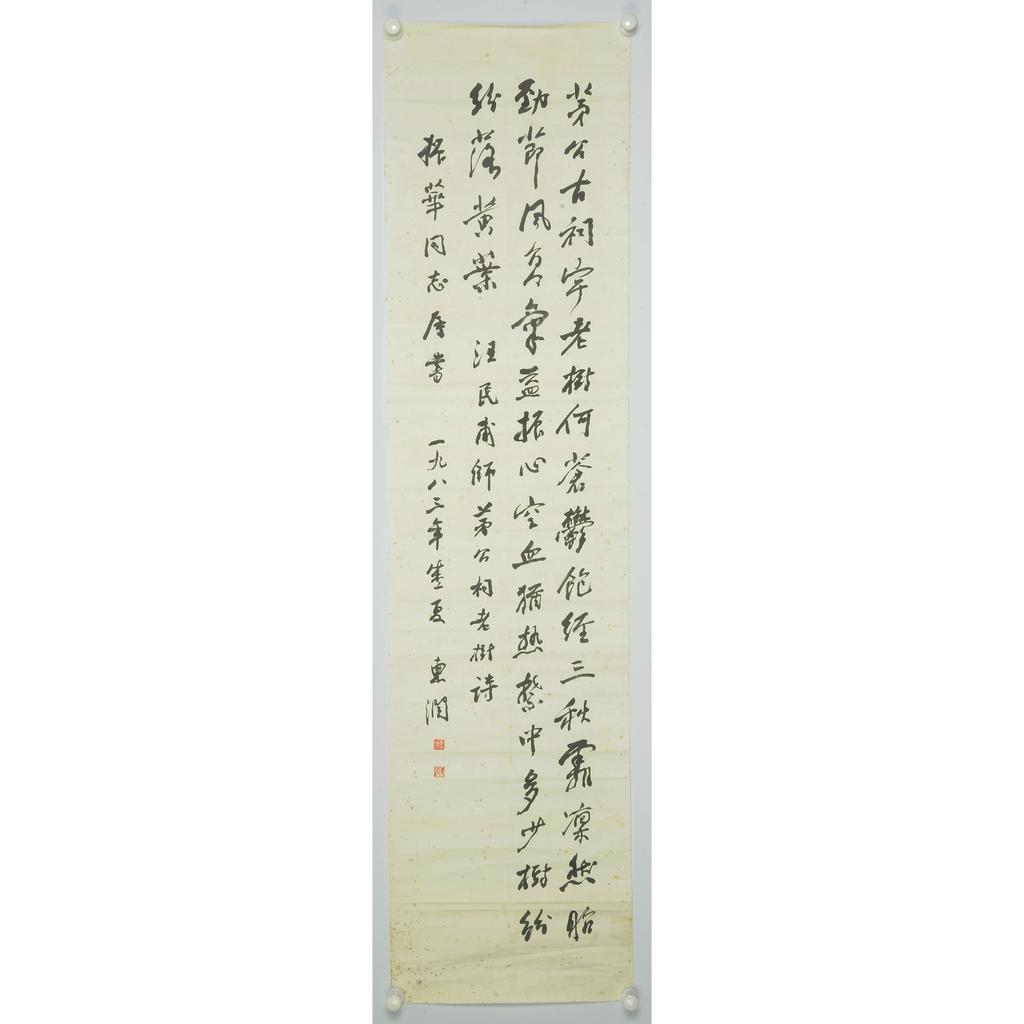 茅公古祠宇老樹何蒼鬱飽經三秋霜凜然貽
勁節風氣益振心空血猶熱中多少樹紛
紛落黃葉 汪民甫師茅公祠老樹詩
振華同志屬書 一九八三年盛夏 東潤